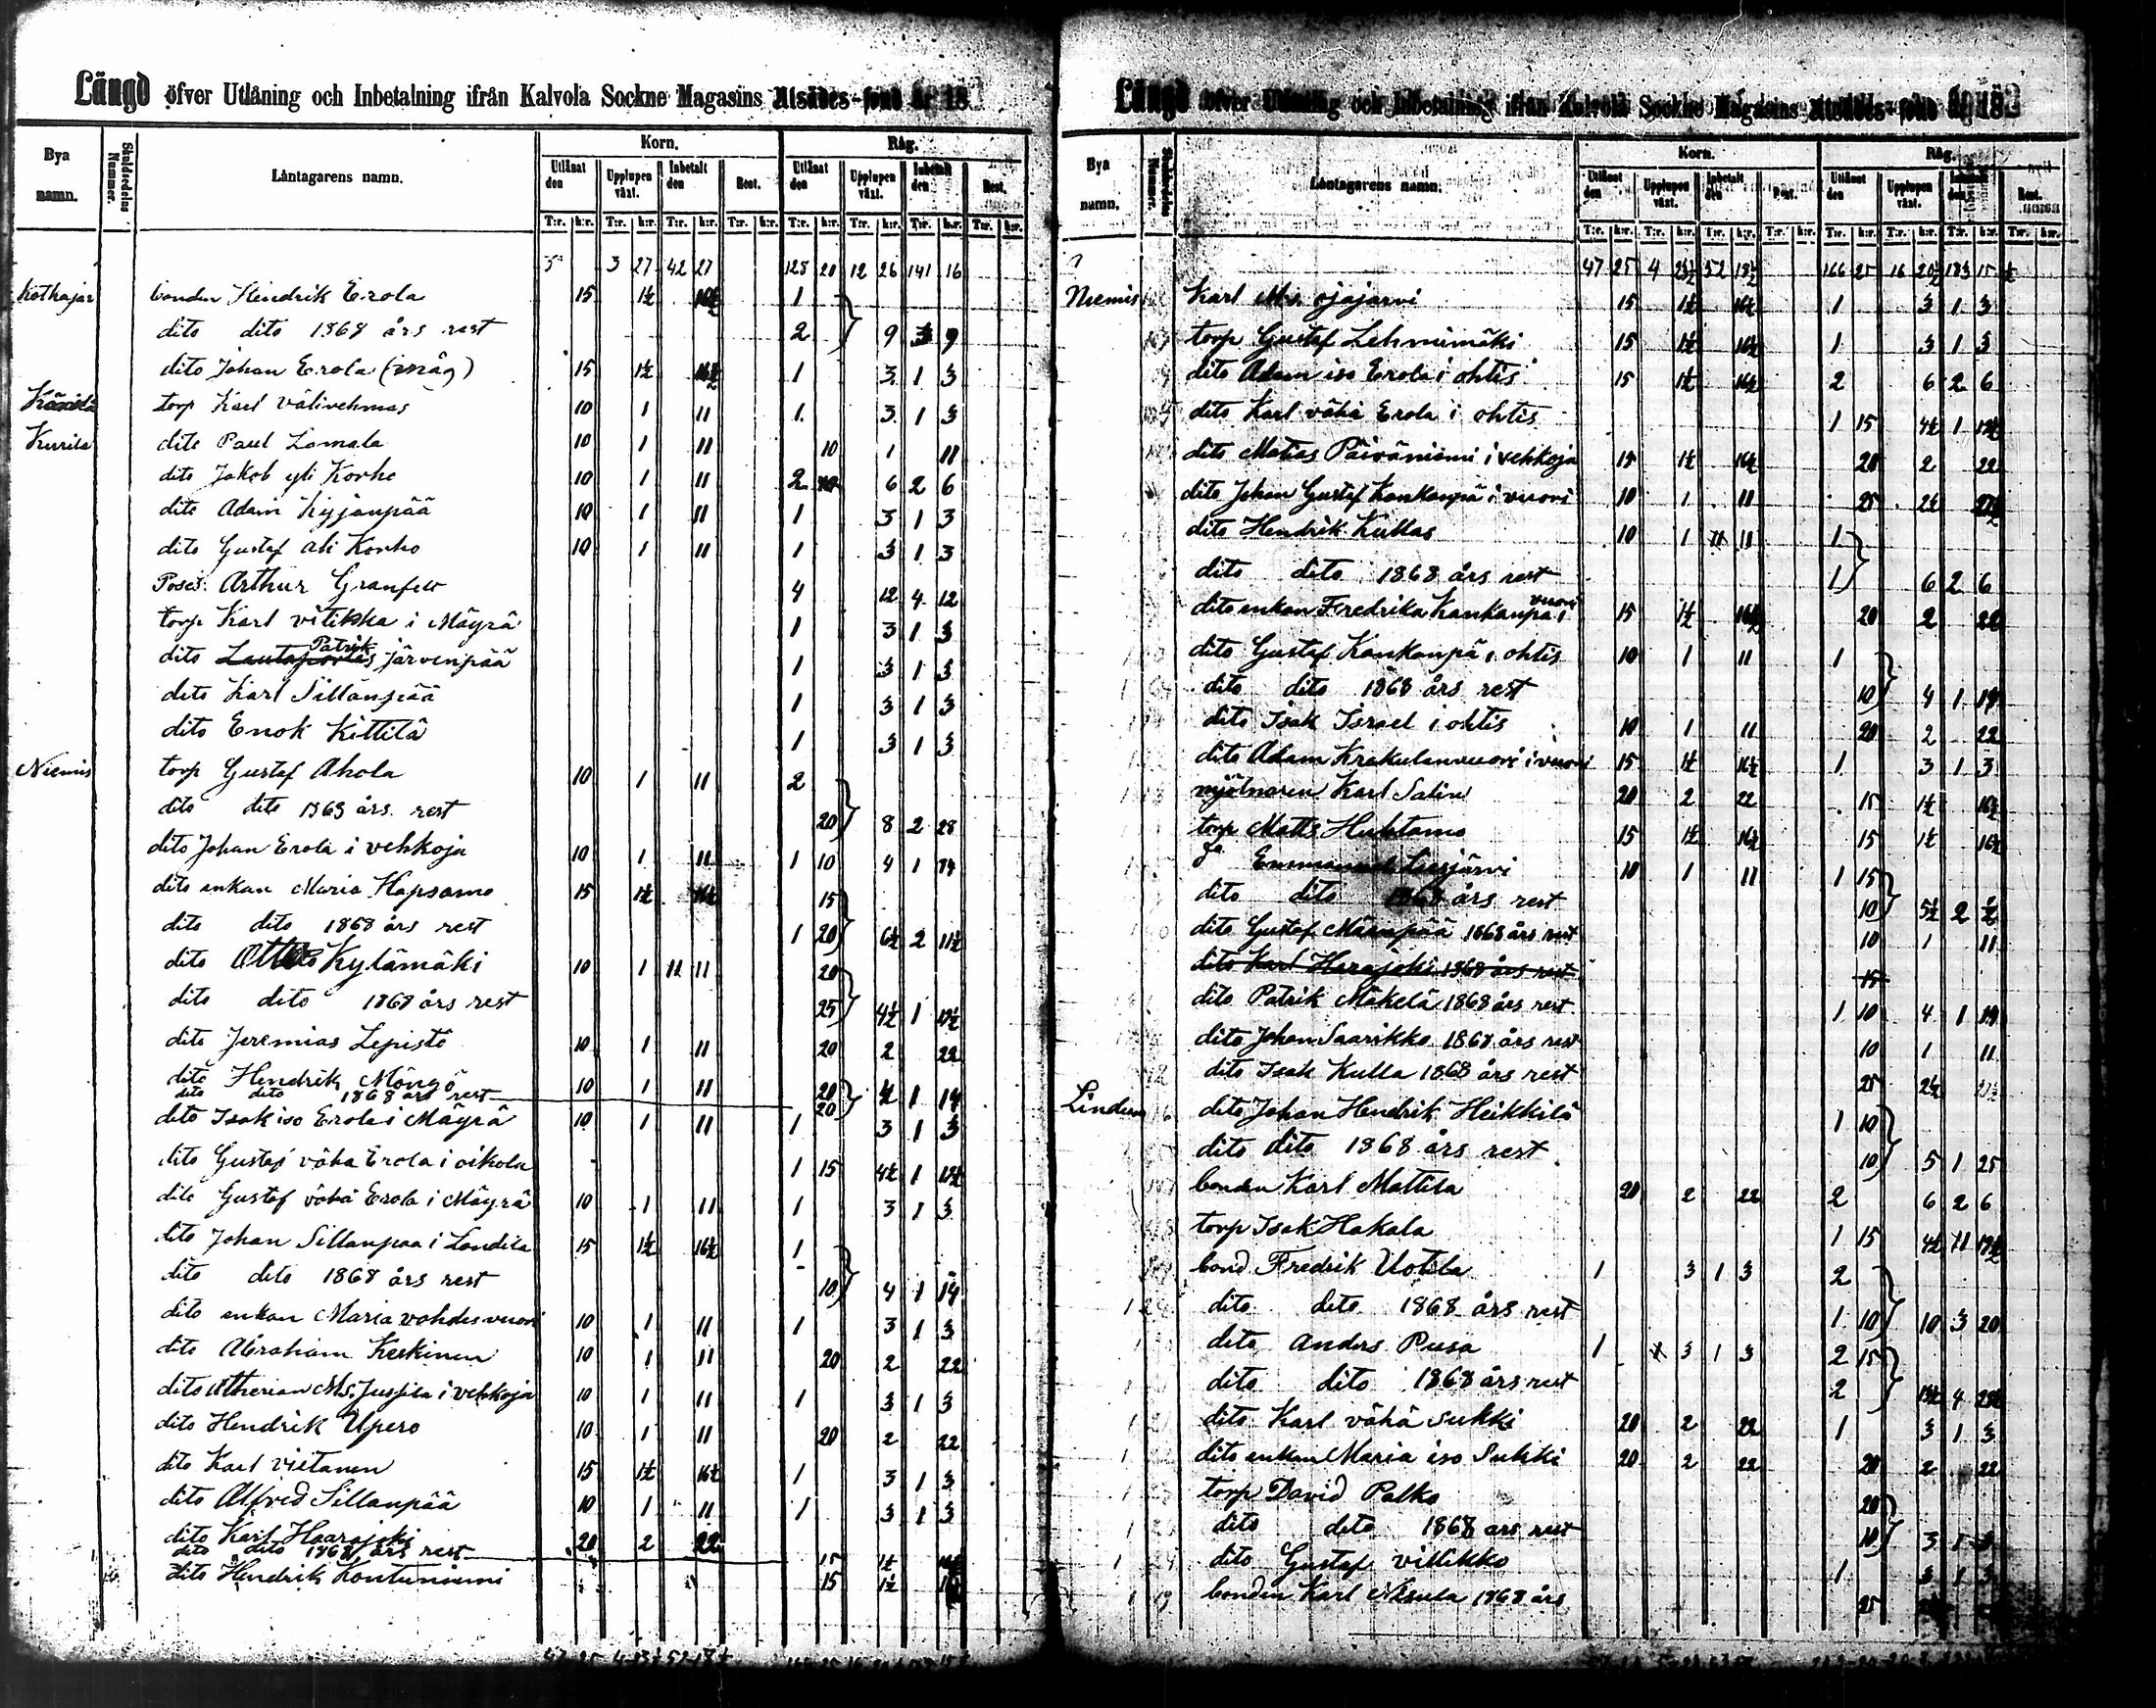 Längd öfver Utlåning och Inbetalning ifrån Kalvola Sockne Magasins Utsädes-fond år 18
Bya namn. Skuldsedelns Nummer. Låntagarens namn. Korn. Råg.
Utlånat den Upplupen växt. Inbetalt den Rest. Utlånat den Upplupen växt. Inbetalt den Rest.
T:r. k:r. T:r. k:r. T:r. k:r. T:r. k:r. T:r. k:r. T:r. k:r. T:r. k:r. T:r. k:r.
3 27 42 27 128 20 12 26 141 16
Kotkajär bonden Hendrik Erola 15 1½ 16½ 1
dito dito 1868 års rest 2 9 3 9
dito Johan Erola (måg) 15 1½ 16½ 1 3 1 3
torp Karl välivehmas 10 1 11 1 3 1 3
Kurila dito Paul Lamala 10 1 11 10 1 11
dito Jakob yli Korho 10 1 11 2 6 2 6
dito Adam Kyjänpää 10 1 11 1 3 1 3
dito Gustaf ali Korho 10 1 11 1 3 1 3
Poses: Arthur Granfelt 4 12 4 12
torp Karl vitikka i Mäyrä 1 3 1 3
dito Patrik järvenpää 1 3 1 3
dito Karl Sillänpää 1 3 1 3
dito Enok Kittilä 1 3 1 3
Niemis torp Gustaf Ahola 10 1 11 2
dito dito 1868 års rest 20 8 2 28
dito Johan Erola i vehkoja 10 1 11 1 10 4 1 14
dito enkan Maria Hapsamo 15 1½ 16½ 15
dito dito 1868 års rest 1 20 6½ 2 11½
dito Otto Kylämäki 10 1 11 11 20
dito dito 1868 års rest 25 4½ 1 19½
dito Jeremias Lepistö 10 1 11 20 2 22
dito Hendrik Möngö 10 1 11 20 4 1 14
dito dito 1868 års rest 20
dito Isak iso Erola i Mäyrä 10 1 11 1 3 1 3
dito Gustaf vähä Erola i oikola 1 15 4½ 1 19½
dito Gustaf vähä Erola i Mäyrä 10 1 11 1 3 1 3
dito Johan Sillanpaa i Landila 15 1½ 16½ 1
dito dito 1868 års rest 10 4 1 14
dito enkan Maria vahdesvuori 10 1 11 1 3 1 3
dito Abraham Keskinen 10 1 11 20 2 22
dito Ms. Jussila i vehkoja 10 1 11 1 3 1 3
dito Hendrik Upero 10 1 11 20 2 22
dito Karl vietanen 15 1½ 16½ 1 3 1 3
dito Alfred Sillanpää 10 1 11 1 3 1 3
dito Karl Haarajoki 20 2 22
dito dito 1868 års rest 15 1½ 16½
dito Hendrik Kontuniemi 15 1½ 16½
Längd öfver Utlåning och Inbetalning ifrån Kalvola Sockne Magasins Utsädes-fond år 18
Bya namn. Skuldsedelns Nummer. Låntagarens namn. Korn. Råg.
Utlånat den Upplupen växt. Inbetalt den Rest. Utlånat den Upplupen växt. Inbetalt den Rest.
T:r. k:r. T:r. k:r. T:r. k:r. T:r. k:r. T:r. k:r. T:r. k:r. T:r. k:r. T:r. k:r.
47 25 4 23½ 52 18½ 166 25 16 20½ 183 15½
Niemis Karl M:s ojajarvi 15 1½ 16½ 1 3 1 3
torp Gustaf Lehmimäki 15 1½ 16½ 1 3 1 3
dito Adam iso Erola i ohtis 15 1½ 16½ 2 6 2 6
dito Karl vähä Erola i ohtis 1 15 4½ 1 19½
dito Matias Päiväniemi i vehkoja 15 1½ 16½ 20 2 22
dito Johan Gustaf Kankanpä i vuori 10 1 11 25 2½ 27½
dito Hendrik Kullas 10 1 11 1
dito dito 1868 års rest 1 6 2 6
dito enkan Fredrika Kankanpä i vuori 15 1½ 16½ 20 2 22
dito Gustaf Kankanpä i ohtis 10 1 11 1
dito dito 1868 års rest 10 4 1 14
dito Isak Israel i ohtis 10 1 11 20 2 22
dito Adam Krakulanvuori i vuori 15 1½ 16½ 1 3 1 3
mjölnaren Karl Salin 20 2 22 15 1½ 16½
torp Matts Huhtamo 15 1½ 16½ 15 1½ 16½
Emmanuel Liesjärvi 10 1 11 1 15
dito dito 1868 års rest 10 5½ 2 ½
dito Gustaf Mäenpää 1868 års rest 10 1 11
dito Karl Harajoki 1868 års rest 15
dito Patrik Mäkelä 1868 års rest 1 10 4 1 14
dito Johan Saarikko 1868 års rest 10 1 11
dito Isak Kulla 1868 års rest 25 2½ 27½
dito Johan Hendrik Heikkilä 1 10
dito dito 1868 års rest 10 5 1 25
bonden Karl Mattila 20 2 22 2 6 2 6
torp Isak Hakala 1 15 4½ 1 19½
bond Fredrik Uotila 1 3 1 3 2
dito dito 1868 års rest 1 10 10 3 20
dito Anders Pusa 1 3 1 3 2 15
dito dito 1868 års rest 2 13½ 4 28½
dito Karl vähä Sukki 20 2 22 1 3 1 3
dito enkan Maria iso Sukki 20 2 22 20 2 22
torp David Palko 20
dito dito 1868 års rest 10 3 1 3
dito Gustaf vitikko 1 3 1 3
bonden Karl Nisula 1868 års 25